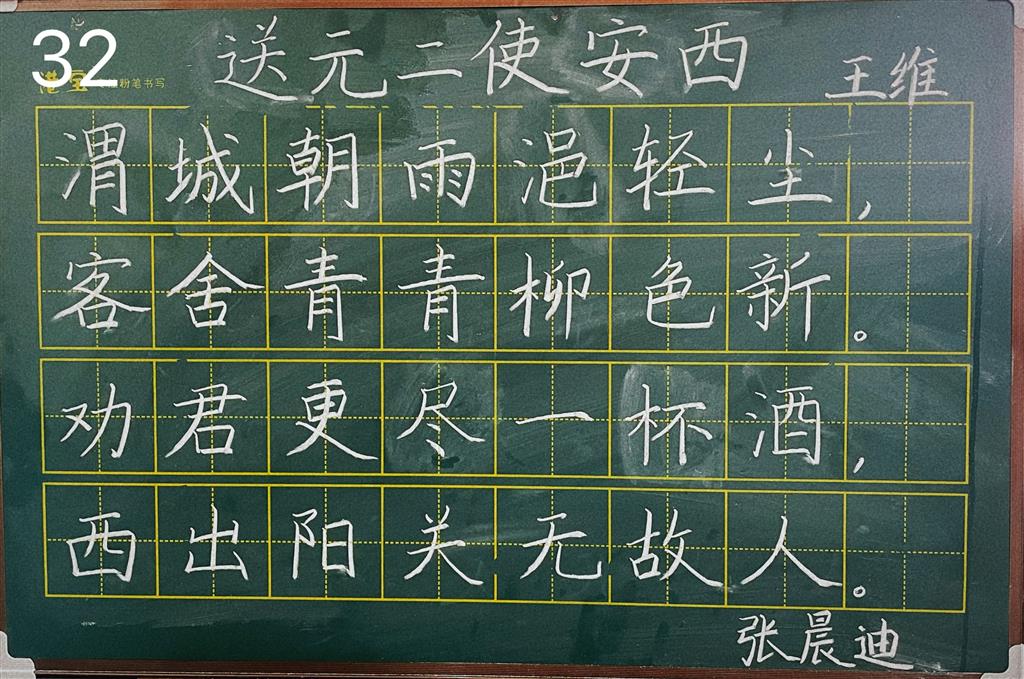 32
送元二使安西
王维
粉笔书写
渭城朝雨浥轻尘,
客舍青青柳色新。
劝君更尽一杯酒,
西出阳关无故人。
张晨迪